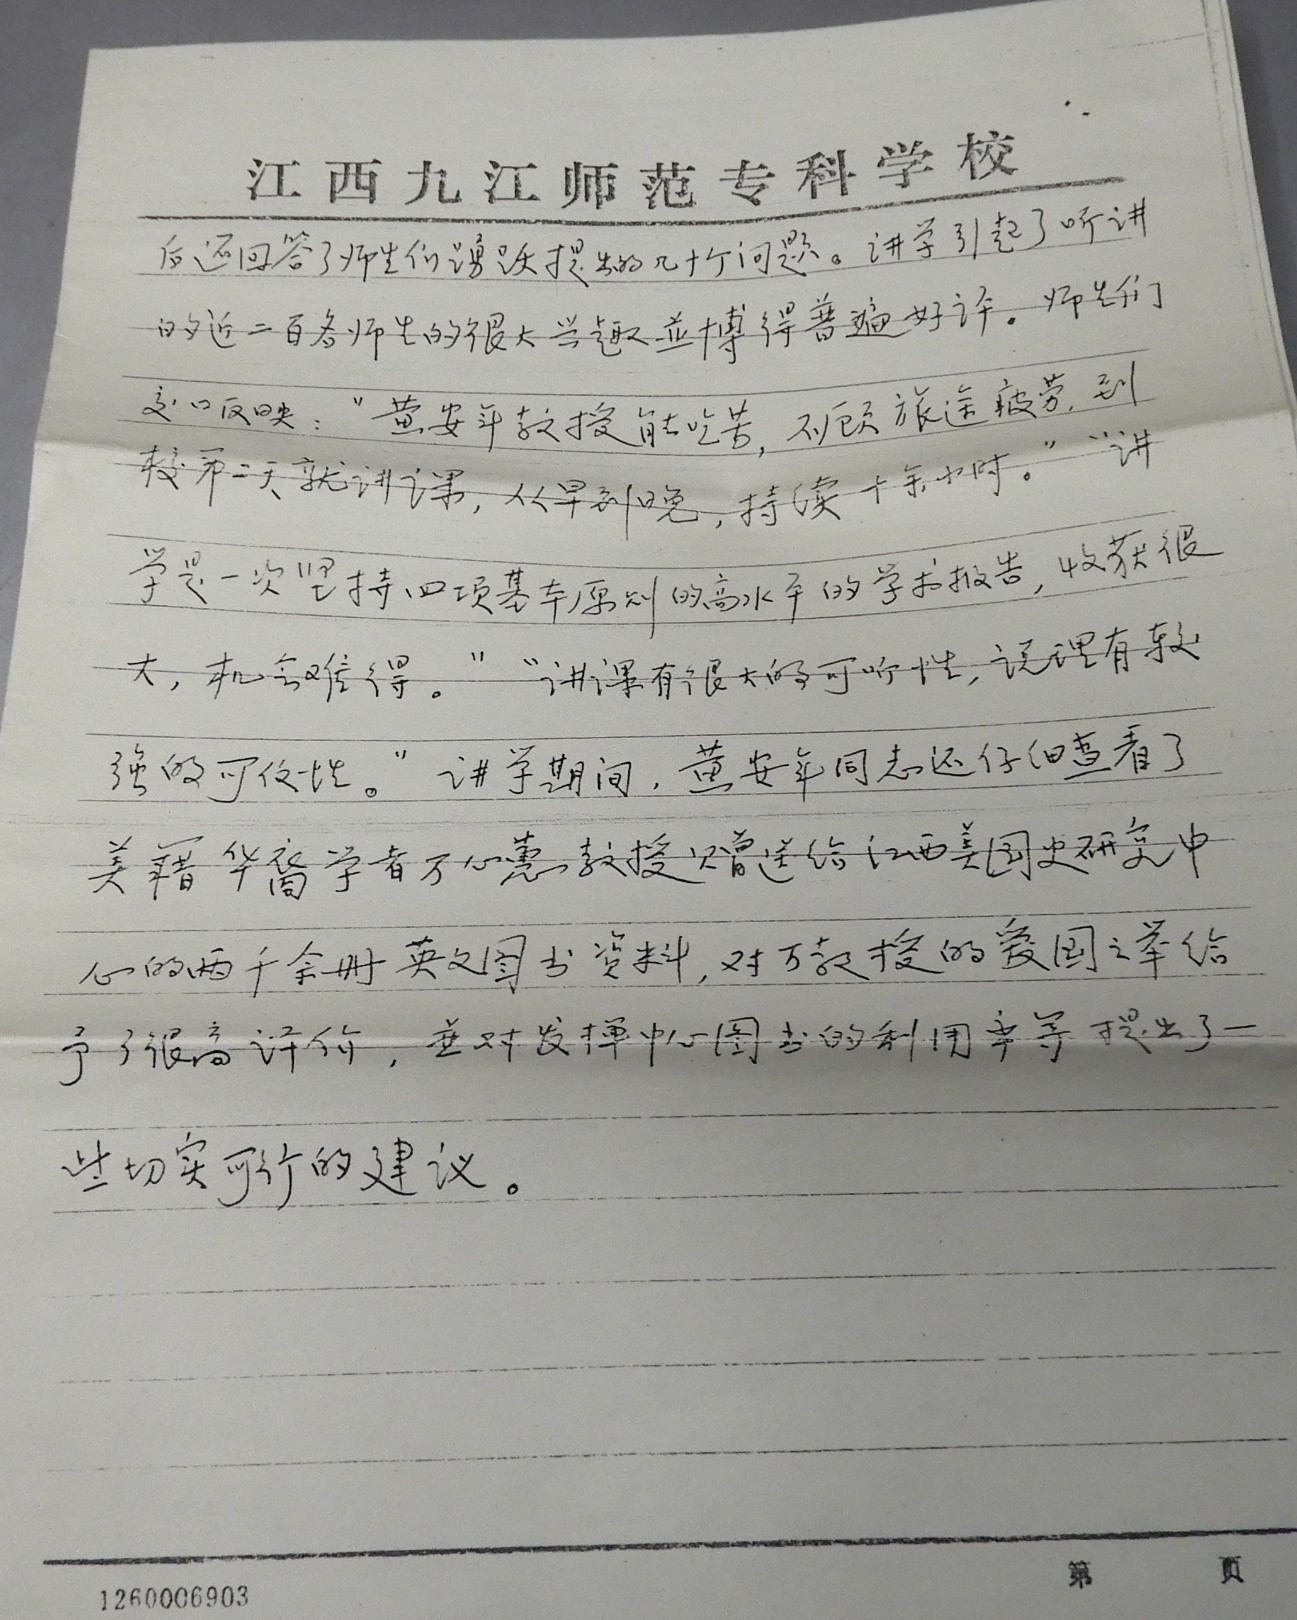 江西九江师范专科学校
后还回答了师生们踊跃提出的几十个问题。讲学引起了听讲
的近二百名师生的很大兴趣並博得普遍好评。师生们
交口反映："黄安年教授能吃苦，不顾旅途疲劳，到
校第二天就讲课，从早到晚，持续十余小时。""讲
学是一次坚持四项基本原则的高水平的学术报告，收获很
大，机会难得。""讲课有很大的可听性，说理有较
强的可信性。"讲学期间，黄安年同志还仔细查看了
美籍华裔学者万心蕙教授赠送给江西美国史研究中
心的两千余册英文图书资料，对万教授的爱国之举给
予了很高评价，並对发挥中心图书的利用率等提出了一
些切实可行的建议。
1260006903
第 页